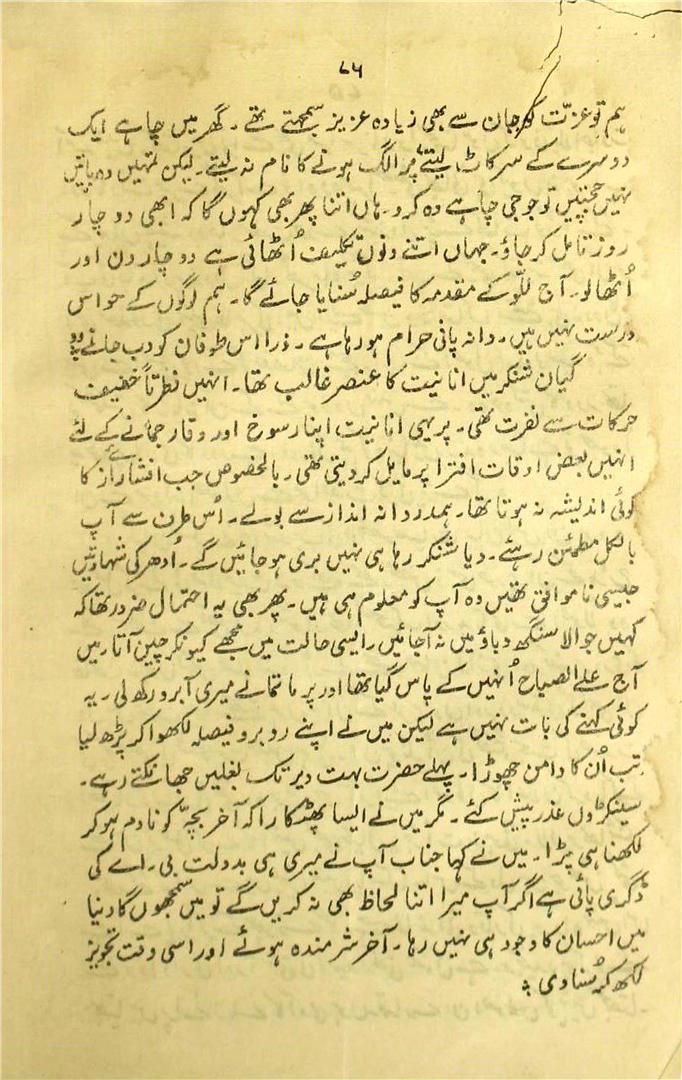 ۷۵
ہم تو عزّت کو جان سے بھی زیادہ عزیز سمجھتے تھے۔ گھر میں چاہے ایک
دوسرے کے سر کاٹ لیتے پر الگ ہونے کا نام نہ لیتے۔ لیکن تمہیں وہ باتیں
نہیں جچتیں تو جو جی چاہے وہ کرو۔ ہاں اتنا پھر بھی کہوں گا کہ ابھی دو چار
روز تامل کر جاؤ۔ جہاں اتنے دنوں تکلیف اُٹھائی ہے دو چار دن اور
اُٹھا لو۔ آج للّو کے مقدمہ کا فیصلہ سُنایا جائے گا۔ ہم لوگوں کے حواس
درست نہیں ہیں۔ دانہ پانی حرام ہو رہا ہے۔ ذرا اس طوفان کو دب جانے دو
گیان شنکر میں انانیت کا عنصر غالب تھا۔ انہیں فطرتاً خفیف
حرکات سے نفرت تھی۔ پر یہی انانیت اپنا رسوخ اور وقار جمانے کے لئے
انہیں بعض اوقات افترا پر مایل کر دیتی تھی۔ بالخصوص جب افشائے راز کا
کوئی اندیشہ نہ ہوتا تھا۔ ہمدردانہ انداز سے بولے۔ اُس طرف سے آپ
بالکل مطمئن رہئے۔ دیا شنکر رہا ہی نہیں بری ہو جائیں گے۔ اُدھر کی شہادتیں
جیسی ناموافق تھیں وہ آپ کو معلوم ہی ہیں۔ پھر بھی یہ احتمال ضرور تھا کہ
کہیں جوالا سنگھ دباؤ میں نہ آجائیں۔ ایسی حالت میں مجھے کیونکر چین آتا۔ میں
آج علے الصباح اُنہیں کے پاس گیا تھا اور پرماتما نے میری آبرو رکھ لی۔ یہ
کوئی کہنے کی بات نہیں ہے لیکن میں نے اپنے روبرو فیصلہ لکھوا کر پڑھ لیا
تب اُن کا دامن چھوڑا۔ پہلے حضرت بہت دیر تک بغلیں جھانکتے رہے۔
سینکڑوں عذر پیش کئے۔ مگر میں نے ایسا پھٹکارا کہ آخر بچہّ کو نادم ہو کر
لکھنا ہی پڑا۔ میں نے کہا جناب آپ نے میری ہی بدولت بی۔ اے کی
ڈگری پائی ہے اگر آپ میرا اتنا لحاظ بھی نہ کریں گے تو میں سمجھوں گا دنیا
میں احسان کا وجود ہی نہیں رہا۔ آخر شرمندہ ہوئے اور اسی وقت تجویز
لکھ کر سُنا دی ؞